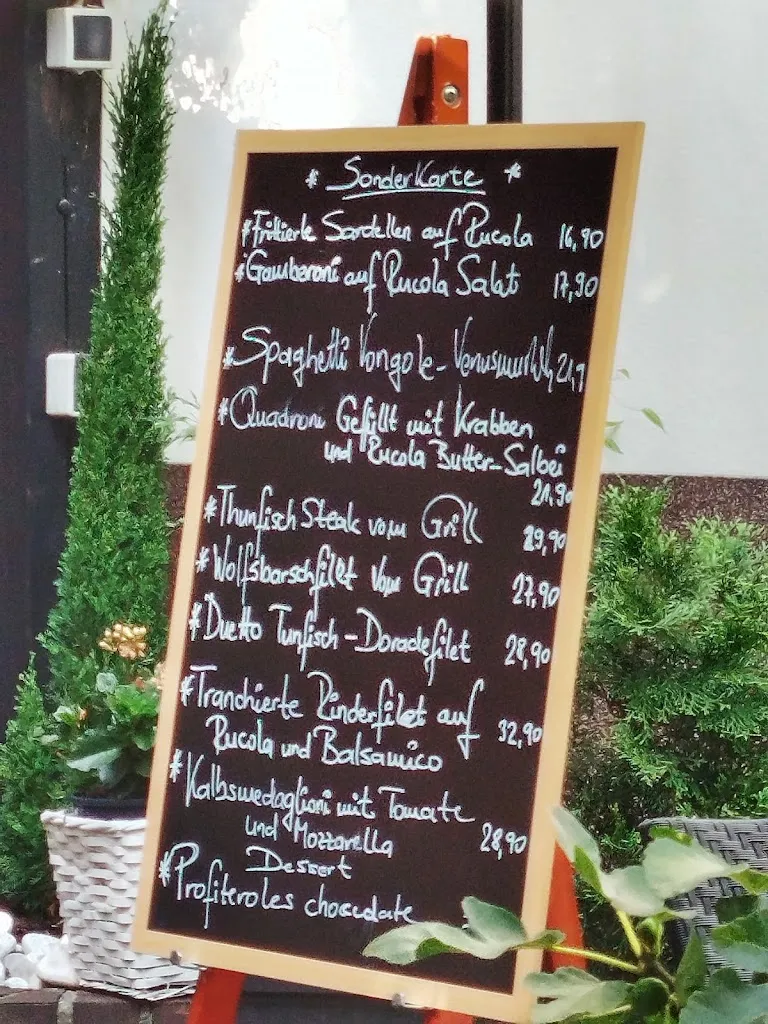 * SonderKarte *
*Frittierte Sardellen auf Rucola 16,90
*Gambaroni auf Rucola Salat 17,90
*Spaghetti Vongole - 21,9
*Quadroni Gefüllt mit Krabben
und Rucola Butter-Salbei
21,90
*Thunfisch Steak vom Grill 29,90
*Wolfsbarschfilet vom Grill 27,90
*Duetto Tunfisch-Doradefilet 28,90
*Tranchierte Rinderfilet auf 32,90
Rucola und Balsamico
*Kalbsmedaglioni mit Tomate
und Mozzarella 28,90
Dessert
*Profiteroles chocolate